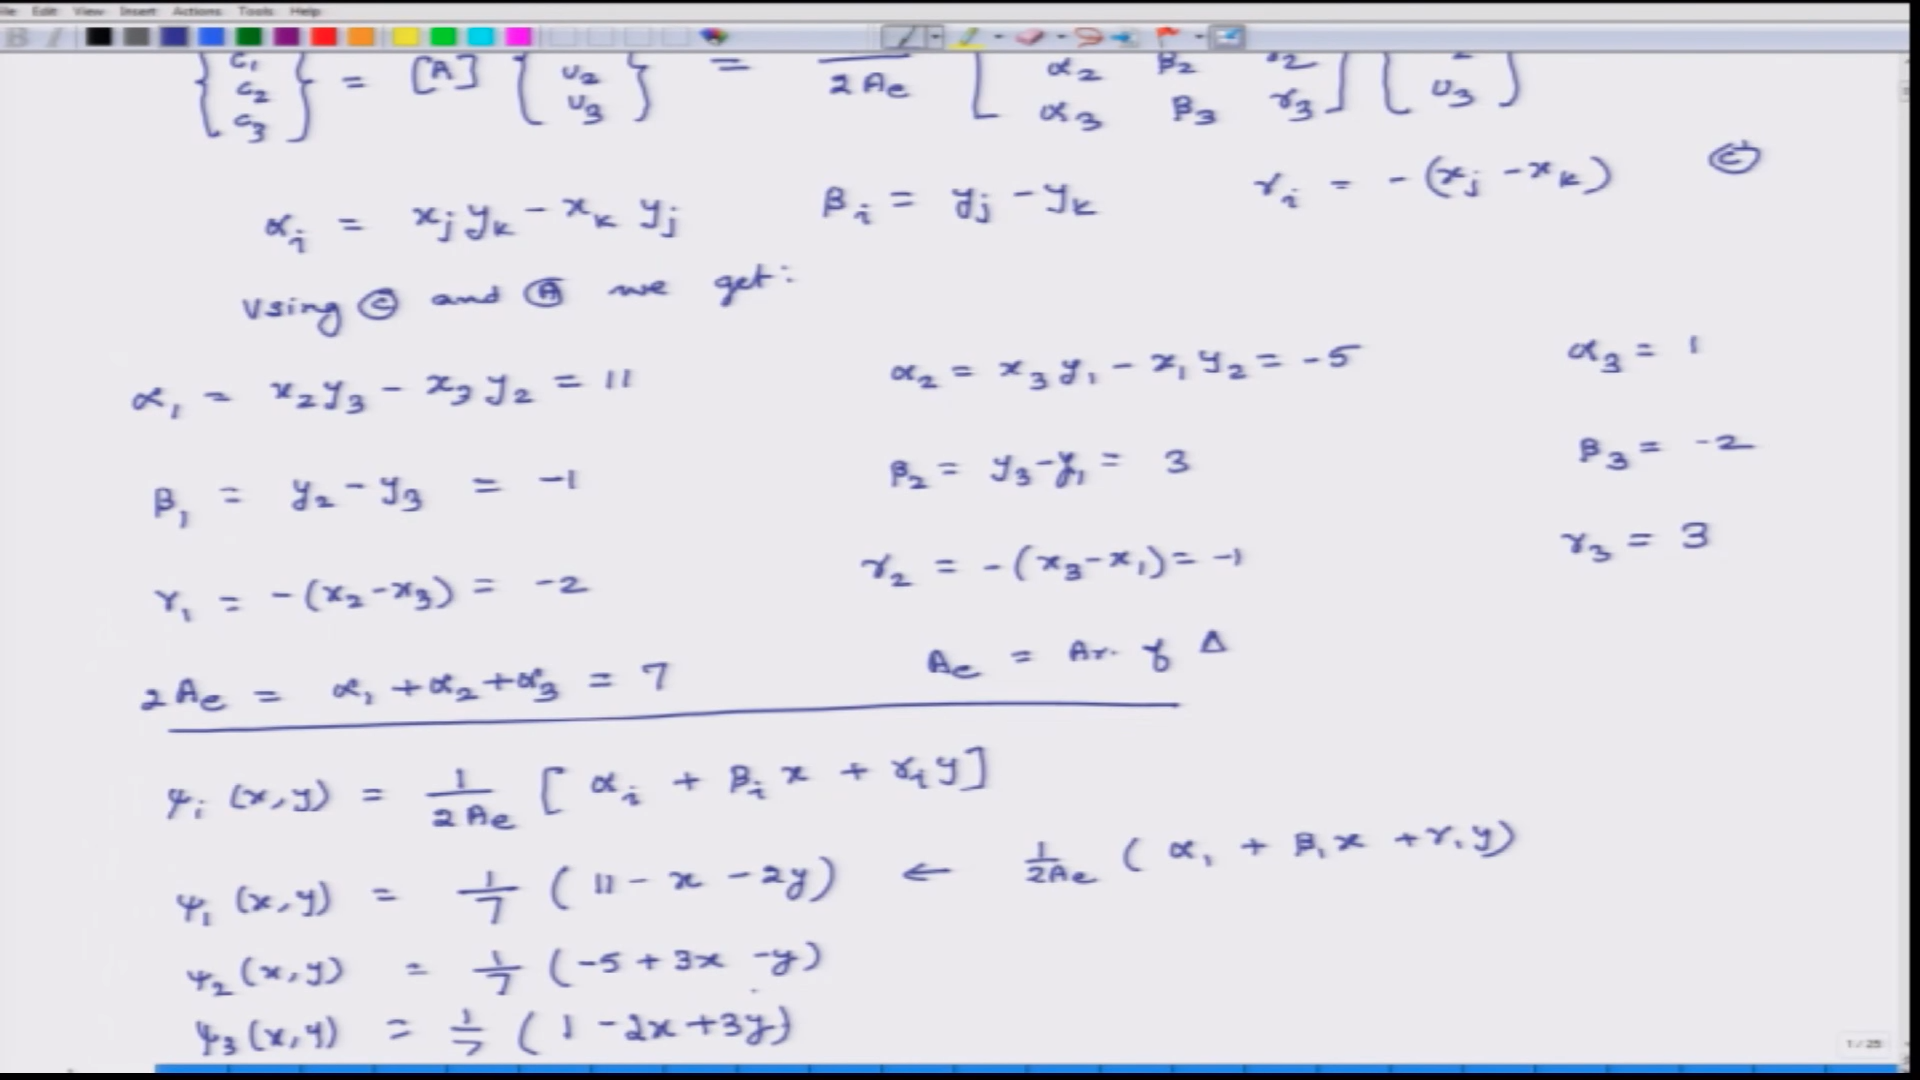 File Edit View Insert Actions Tools Help
B I
{ c₁ c₂ c₃ } = [A] { u₂ u₃ } = / 2Ae [ α₂ β₂ γ₂ α₃ β₃ γ₃ ] { u₃ }
αᵢ = xⱼ yₖ - xₖ yⱼ βᵢ = yⱼ - yₖ γᵢ = -(xⱼ - xₖ) Ⓒ
Using Ⓒ and Ⓐ we get:
α₁ = x₂y₃ - x₃y₂ = 11 α₂ = x₃y₁ - x₁y₂ = -5 α₃ = 1
β₁ = y₂ - y₃ = -1 β₂ = y₃ - y₁ = 3 β₃ = -2
γ₁ = -(x₂-x₃) = -2 γ₂ = -(x₃-x₁) = -1 γ₃ = 3
2Ae = α₁ + α₂ + α₃ = 7 Ae = Ar. of Δ
ψᵢ (x,y) = 1/2Ae [ αᵢ + βᵢ x + γᵢ y ]
ψ₁ (x,y) = 1/7 (11 - x - 2y) ← 1/2Ae ( α₁ + β₁x + γ₁y )
ψ₂ (x,y) = 1/7 (-5 + 3x - y)
ψ₃ (x,y) = 1/7 ( 1 - 2x + 3y )
1 / 25